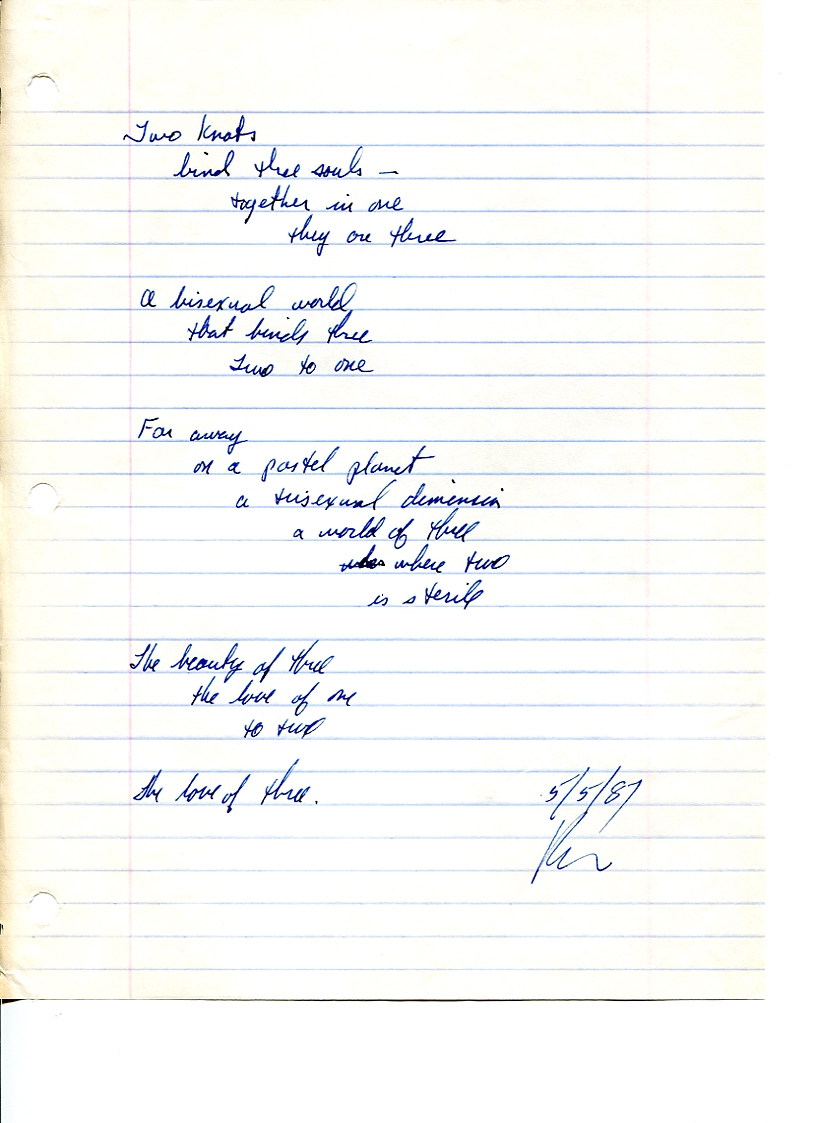 Two Knots
bind three souls —
together in one
they are three
A bisexual world
that binds three
Two to one
Far away
on a pastel planet
a trisexual dimension
a world of three
where two
is sterile
The beauty of three
the love of one
to two
The love of three.
5/5/87